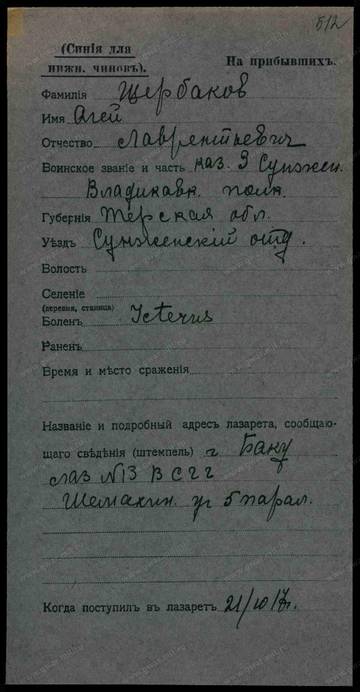 512
(Синія для
нижн. чиновъ).
На прибывшихъ.
Фамилія Щербаков
Имя Агей
Отчество Лаврентьевич
Воинское званіе и часть каз. 3 Сунжен.
Владикавк. полк.
Губернія Терская обл.
Уѣздъ Сунженскій отд.
Волость
Селеніе
(деревня, станица)
Боленъ Icterus
Раненъ
Время и мѣсто сраженія
Названіе и подробный адресъ лазарета, сообщаю-
щаго свѣдѣнія (штемпель) г Баку
лаз N13 В С Г Г
Шемахин. уг 5 парал.
Когда поступилъ въ лазаретъ 21/10 17г.